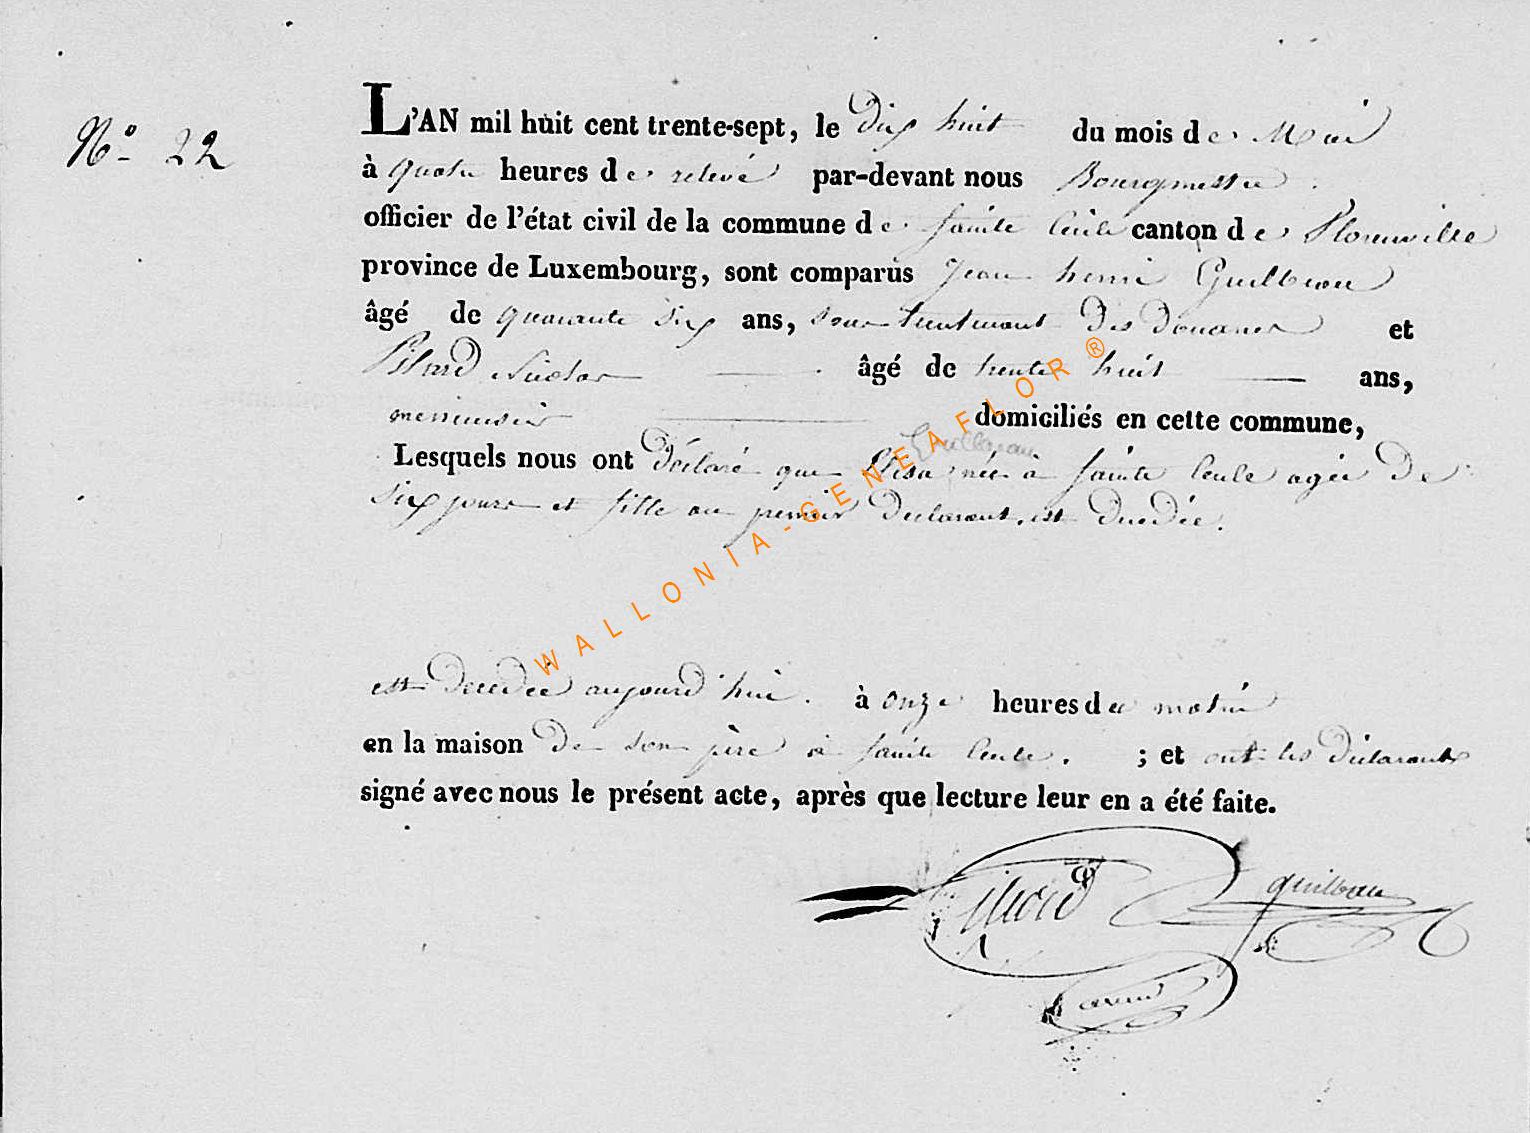 N° 22
L'AN mil huit cent trente-sept, le dix huit du mois de Mai
à quatre heures de relevé par-devant nous Bourgmestre
officier de l'état civil de la commune de Sainte Cécile canton de Florenville
province de Luxembourg, sont comparus Jean henri Guilleau
âgé de quarante six ans, sous lieutenant des douanes et
Pihard Nicolas âgé de trente huit ans,
menuisier domiciliés en cette commune,
Lesquels nous ont déclaré que Elisa née à Sainte Cecile agée de
six jours et fille au premier declarant, est decedée.
est decedée aujourd'hui. à onze heures du matin
en la maison de son père à Sainte Cecile. ; et ont les déclarants
signé avec nous le présent acte, après que lecture leur en a été faite.
WALLONIA-GENEAFLOR ®